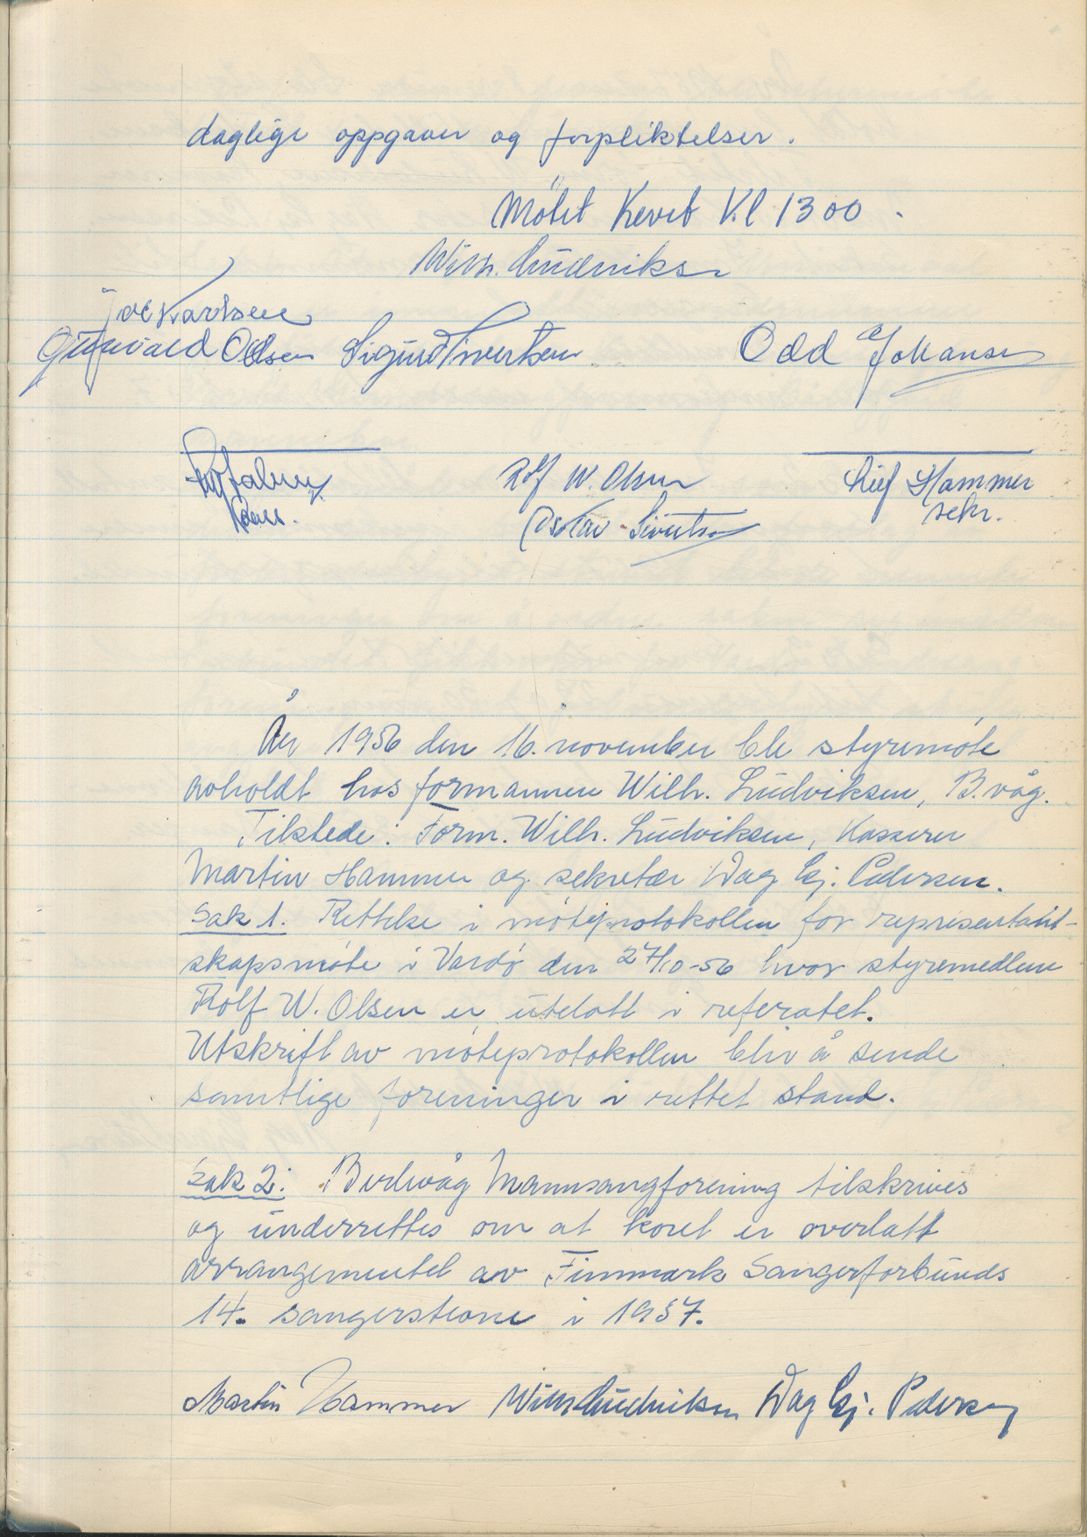 daglige oppgaver og forpliktelser.
Møtet hevet kl 1300.
Wilh. Ludviksen
Karlsen
Gunvald Olsen Sigurd Sivertsen Odd A Johansen
Rolf W. Olsen Leif Hammer
Oskar Sivertsen sekr.
År 1956 den 16. november ble styremøte
avholdt hos formannen Wilh. Ludviksen, B.våg.
Tilstede: Form. Wilh. Ludviksen, Kasserer
Martin Hammer og sekretær Dag Ej. Pedersen.
Sak 1. Rettelse i møteprotokollen for representant-
skapsmøte i Vardø den 27/10-56 hvor styremedlem
Rolf W. Olsen er utelatt i referatet.
Utskrift av møteprotokollen blir å sende
samtlige foreninger i rettet stand.
Sak 2: Berlevåg Mannsangforening tilskrives
og underrettes om at koret er overlatt
arrangementet av Finnmark Sangerforbunds
14. sangerstevne i 1957.
Martin Hammer Wilh Ludviksen Dag Ej. Pedersen